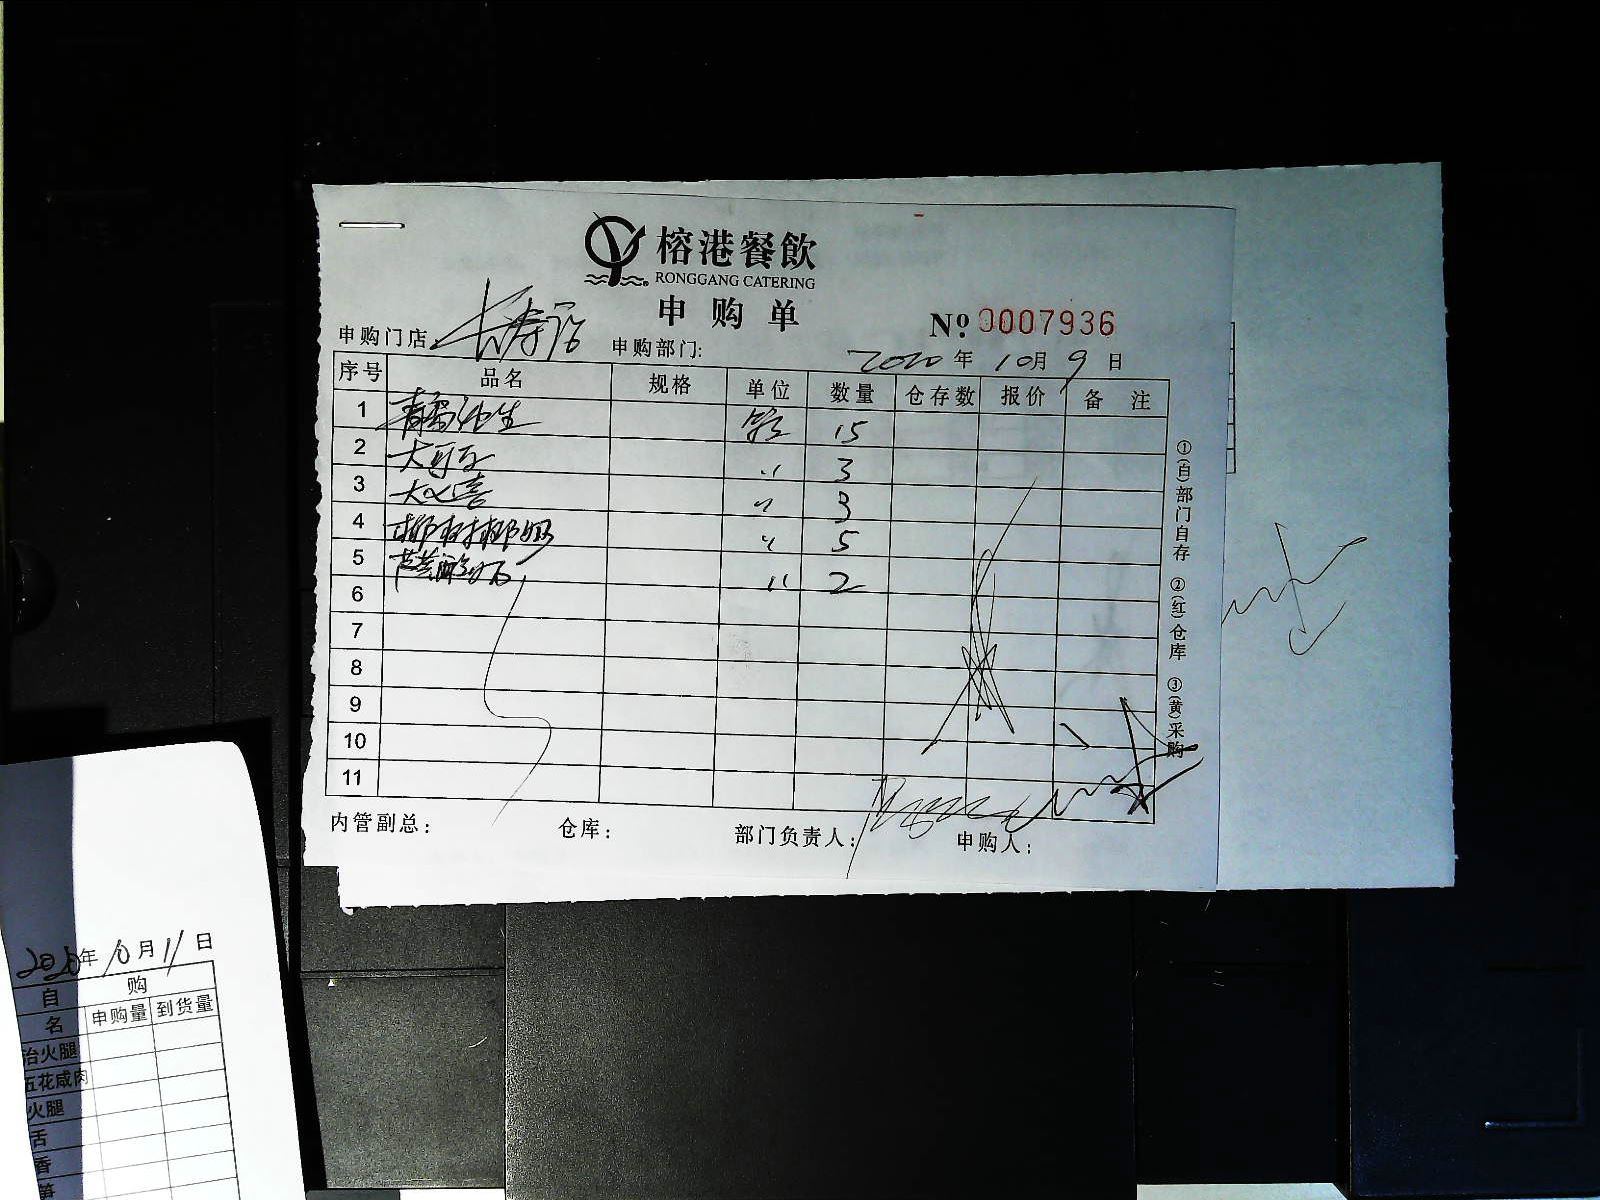 榕港餐飲
RONGGANG CATERING
申购单
№ 0007936
申购门店 长寿路 申购部门: 2020年10月9日
序号 品名 规格 单位 数量 仓存数 报价 备注
1 青岛纯生 箱 15
2 大可乐 〃 3
3 大雪碧 〃 3
4 椰树椰奶 〃 5
5 〃 2
6
7
8
9
10
11
①(白)部门自存 ②(红)仓库 ③(黄)采购
内管副总: 仓库: 部门负责人: 申购人:
2020年10月11日
自 购
名 申购量 到货量
治火腿
五花咸肉
火腿
舌
香
笋